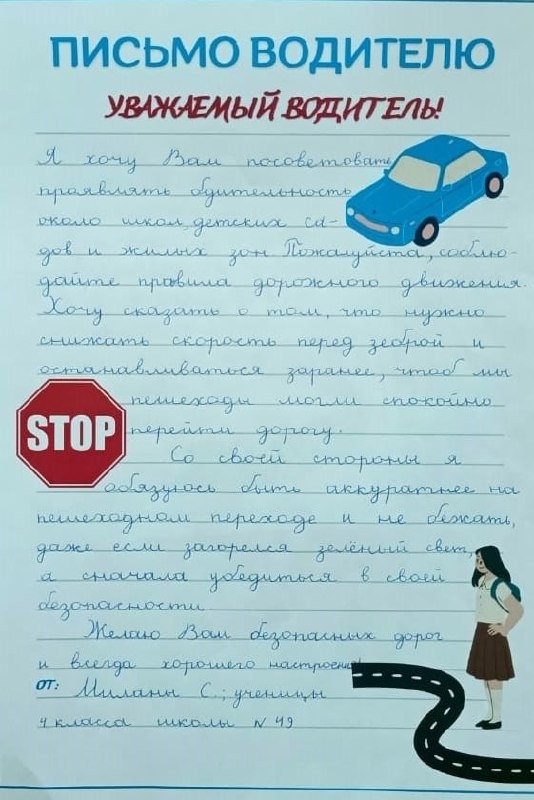 ПИСЬМО ВОДИТЕЛЮ
УВАЖАЕМЫЙ ВОДИТЕЛЬ!
Я хочу Вам посоветовать
проявлять бдительность
около школ, детских са-
дов и жилых зон. Пожалуйста, соблю-
дайте правила дорожного движения.
Хочу сказать о том, что нужно
снижать скорость перед зеброй и
останавливаться заранее, чтоб мы
пешеходы могли спокойно
STOP
перейти дорогу.
Со своей стороны я
обязуюсь быть аккуратнее на
пешеходном переходе и не бежать,
даже если загорелся зелёный свет,
а сначала убедиться в своей
безопасности.
Желаю Вам безопасных дорог
и всегда хорошего настроения!
ОТ: Миланы С.; ученицы
4 класса школы N 49